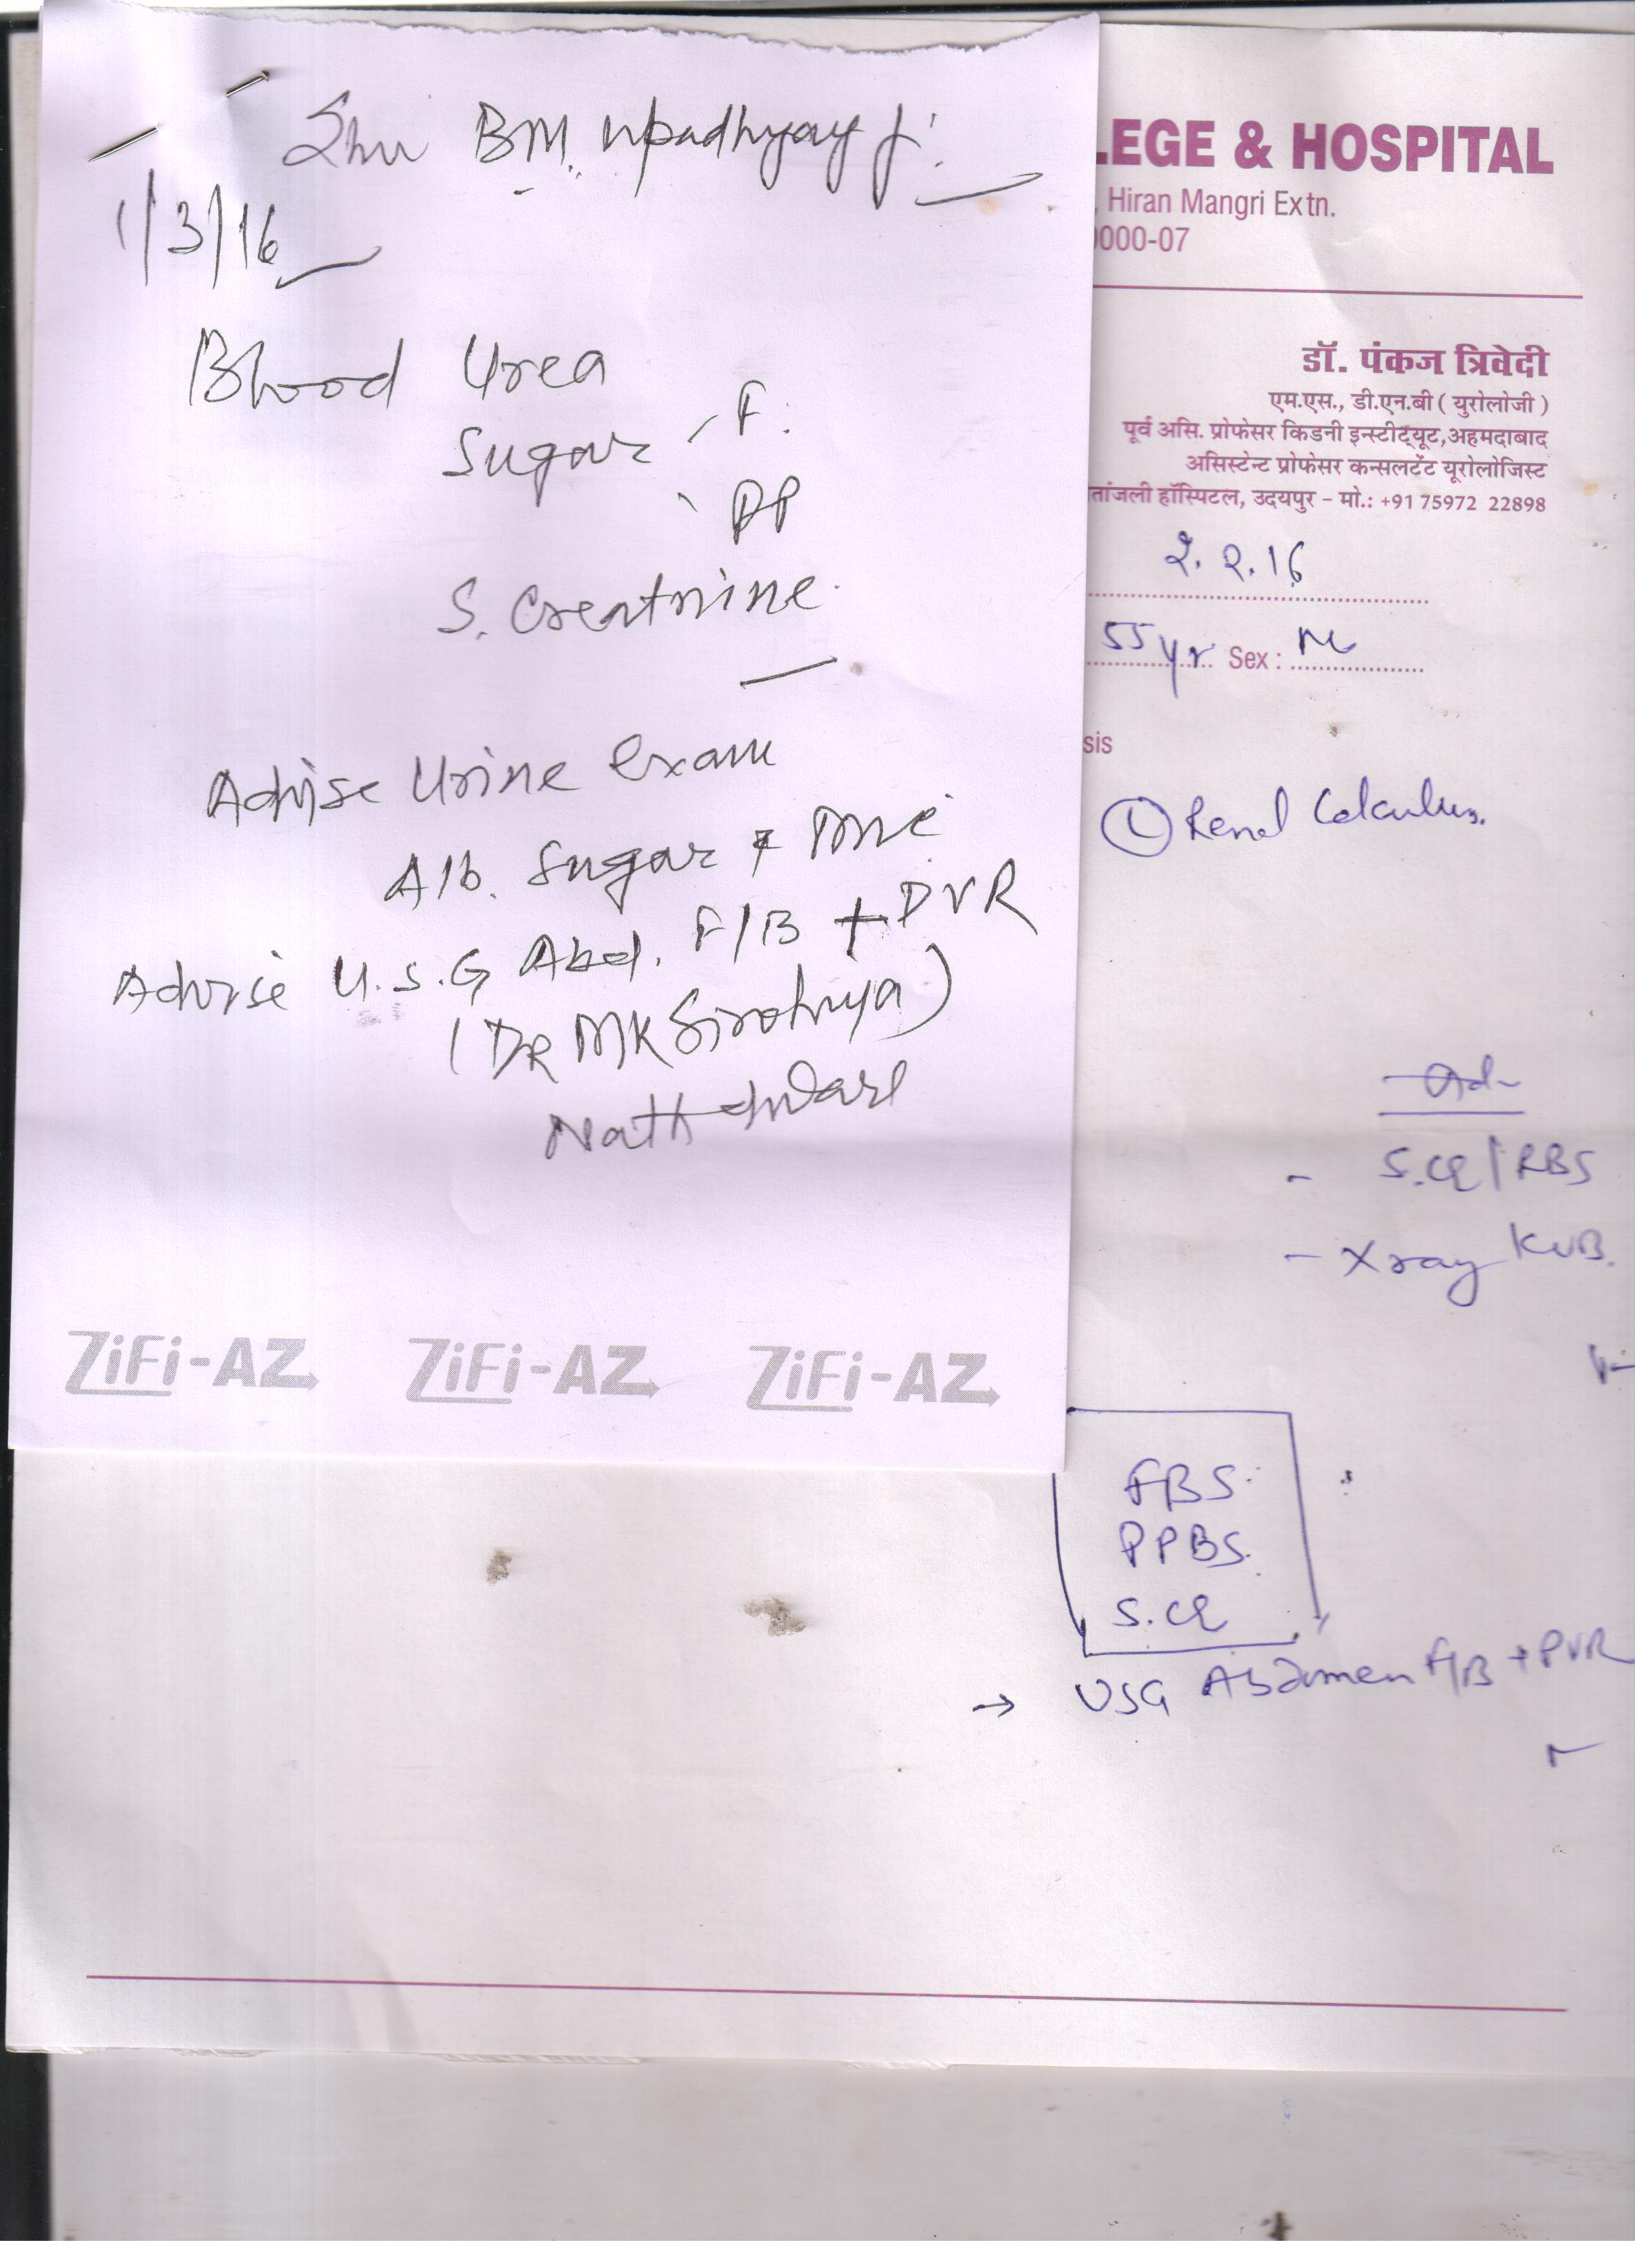 Shri BM Upadhyay ji
1/3/16
Blood Urea
Sugar - F.
PP
S. Creatnine
Advise Urine Exam
Alb. Sugar + Mic
Advise U.S.G Abd. F/B + PVR
(DR MK Sirohiya)
Nathdwara
ZiFi-AZ ZiFi-AZ ZiFi-AZ
LEGE & HOSPITAL
, Hiran Mangri Extn.
0000-07
डॉ. पंकज त्रिवेदी
एम.एस., डी.एन.बी ( युरोलोजी )
पूर्व असि. प्रोफेसर किडनी इन्स्टीट्यूट,अहमदाबाद
असिस्टेन्ट प्रोफेसर कन्सलटेंट यूरोलोजिस्ट
तांजली हॉस्पिटल, उदयपुर - मो.: +91 75972 22898
2.2.16
55 yr Sex : M
sis
(L) Renal Calculus.
Adv
- S.CR / RBS
- Xray KUB.
FBS
PPBS.
S.CR
→ USG Abdomen F/B + PVR